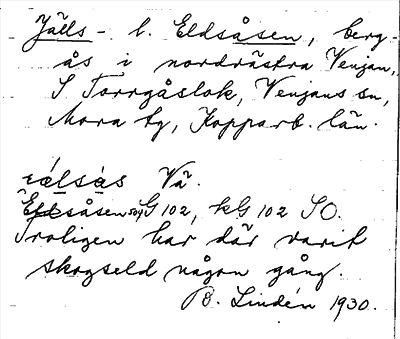 Jälls- l. Eldsåsen, berg-
ås i nordvästra Venjan,
S Torrgåslok, Venjans sn,
Mora tg, Kopparb. län.
Vä.
Eldsåsen G 102, kG 102 SO.
Troligen har där varit
skogseld någon gång.
B. Lindén 1930.